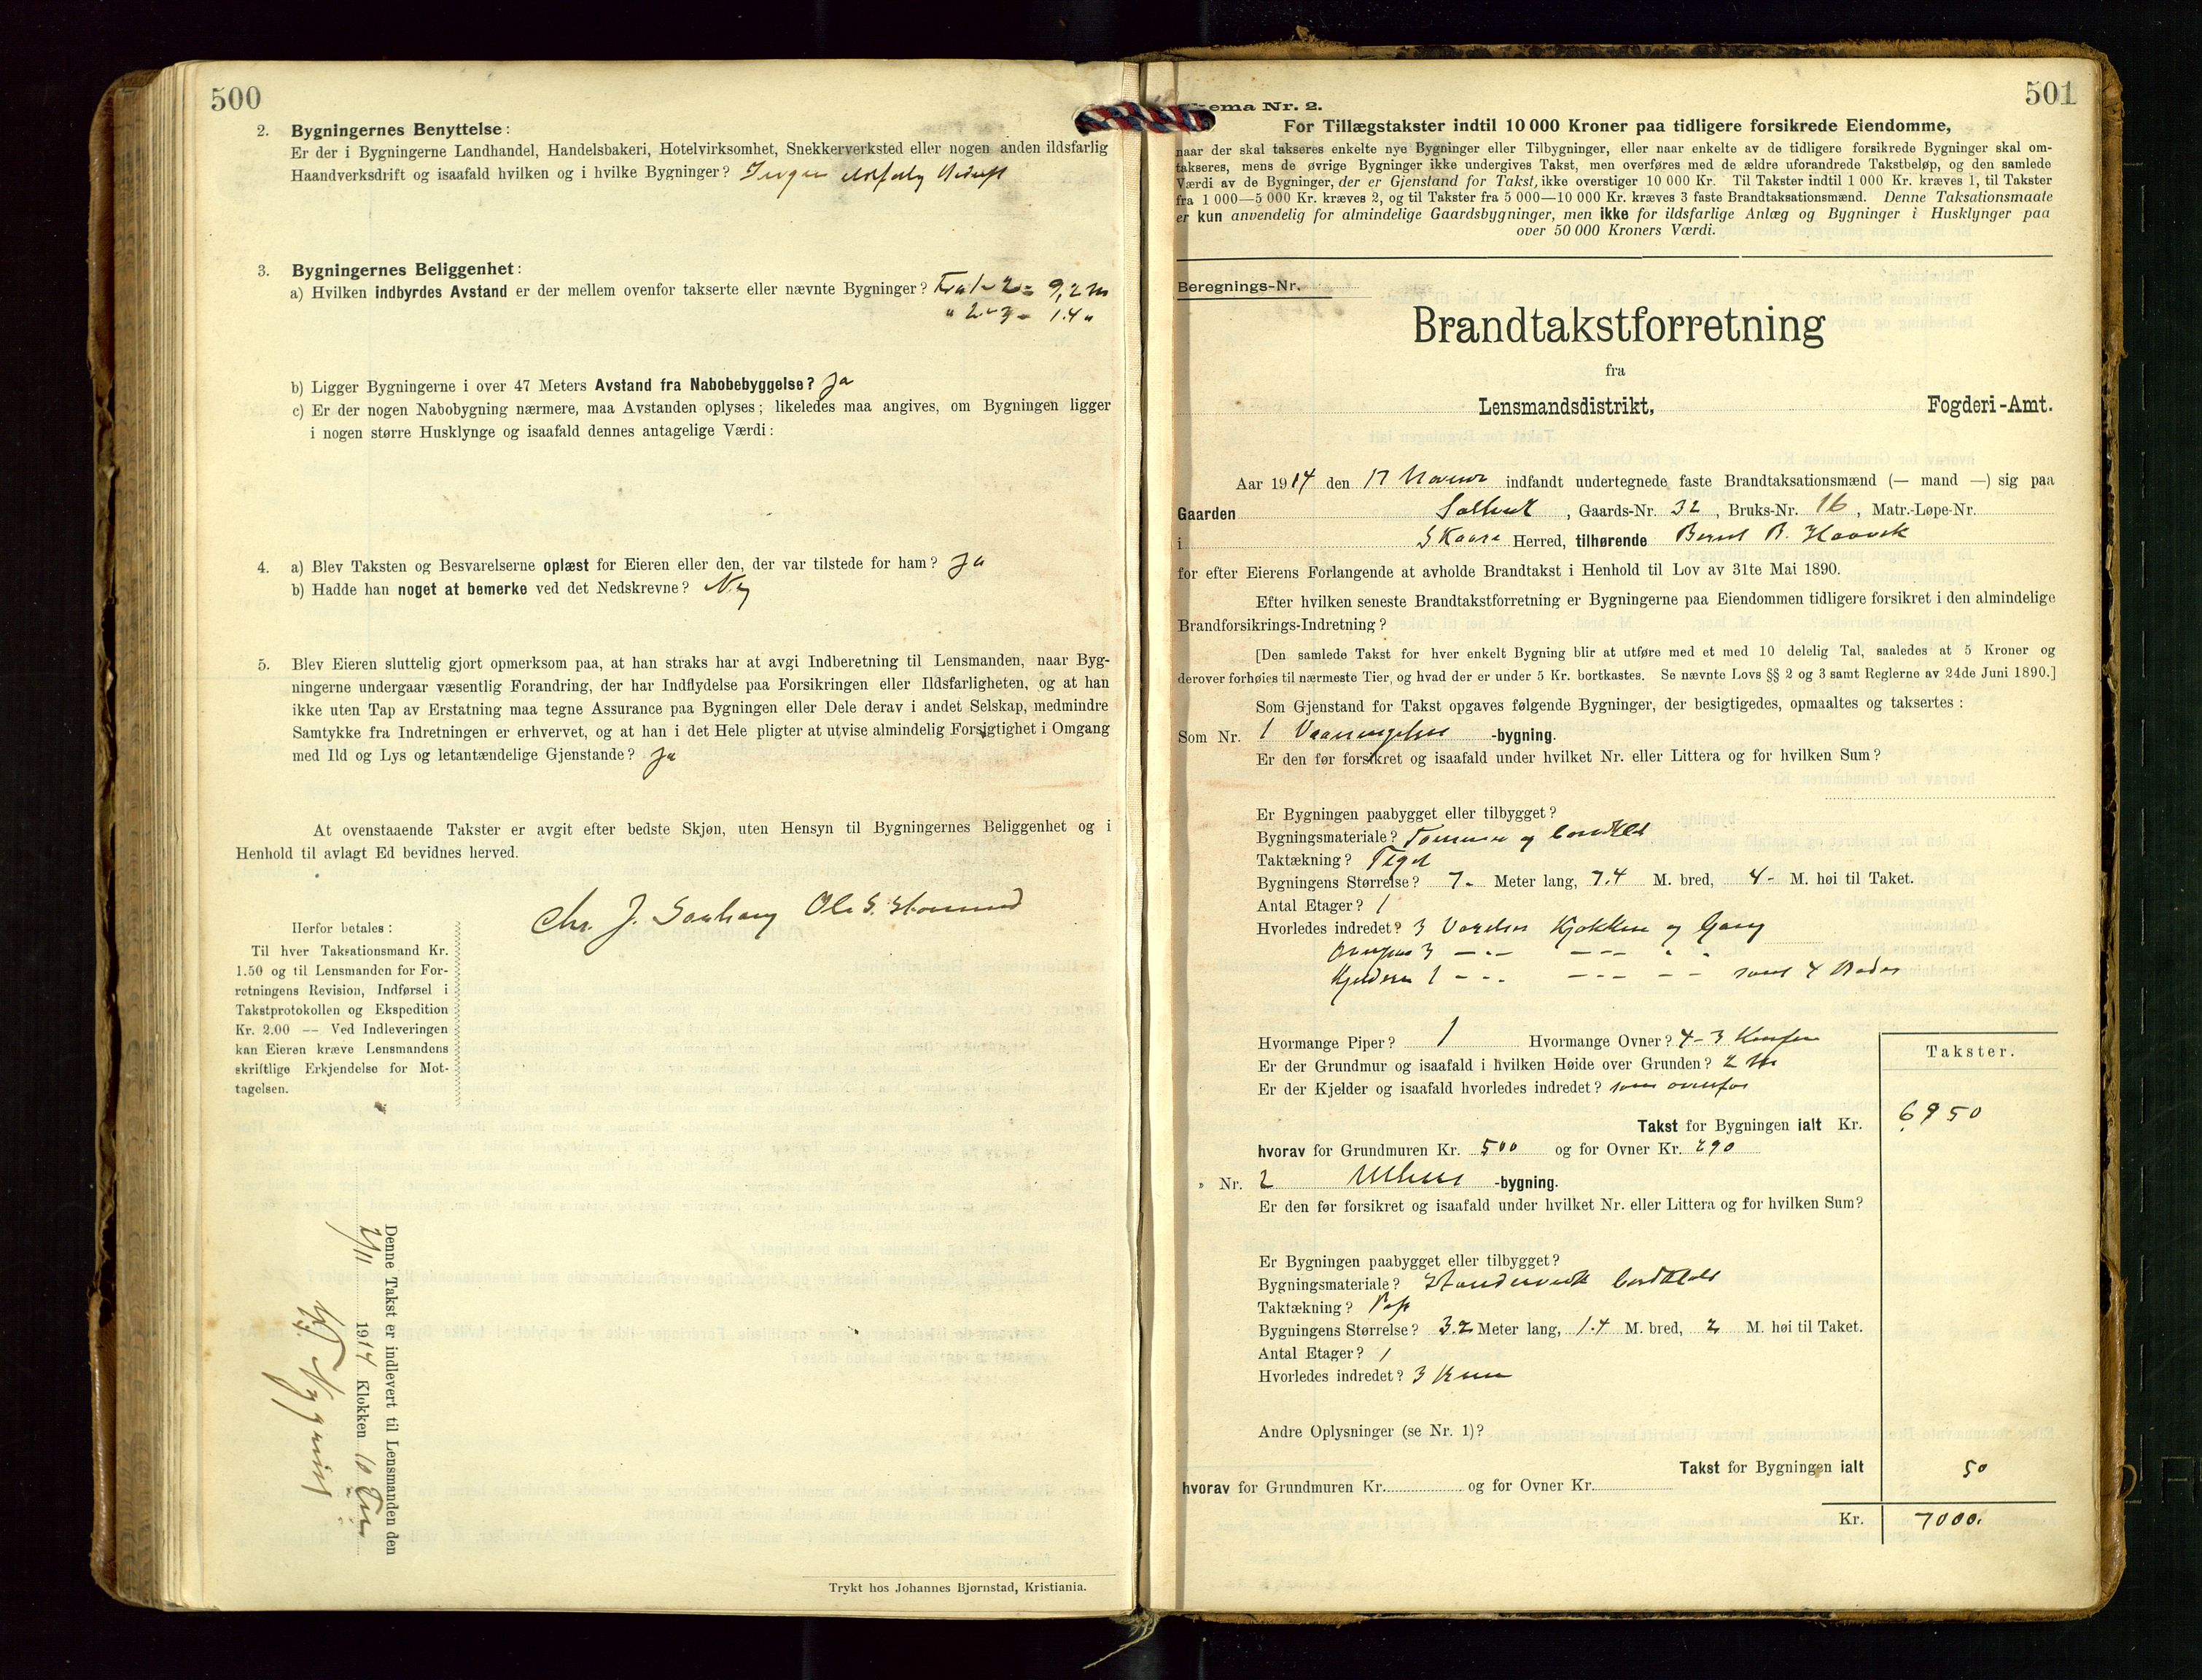 500
2. Bygningernes Benyttelse:
Er der i Bygningerne Landhandel, Handelsbakeri, Hotelvirksomhet, Snekkerverksted eller nogen anden ildsfarlig
Haandverksdrift og isaafald hvilken og i hvilke Bygninger? Ingen ildsfarlig Bedrift
3. Bygningernes Beliggenhet:
a) Hvilken indbyrdes Avstand er der mellem ovenfor takserte eller nævnte Bygninger? Fra 1-2 = 9,2 m
" 2-3 = 1.4 "
b) Ligger Bygningerne i over 47 Meters Avstand fra Nabobebyggelse? Ja
c) Er der nogen Nabobygning nærmere, maa Avstanden oplyses; likeledes maa angives, om Bygningen ligger
i nogen større Husklynge og isaafald dennes antagelige Værdi:
4. a) Blev Taksten og Besvarelserne oplæst for Eieren eller den, der var tilstede for ham? Ja
b) Hadde han noget at bemerke ved det Nedskrevne? Nej
5. Blev Eieren sluttelig gjort opmerksom paa, at han straks har at avgi Indberetning til Lensmanden, naar Byg-
ningerne undergaar væsentlig Forandring, der har Indflydelse paa Forsikringen eller Ildsfarligheten, og at han
ikke uten Tap av Erstatning maa tegne Assurance paa Bygningen eller Dele derav i andet Selskap, medmindre
Samtykke fra Indretningen er erhvervet, og at han i det Hele pligter at utvise almindelig Forsigtighet i Omgang
med Ild og Lys og letantændelige Gjenstande? Ja
At ovenstaaende Takster er avgit efter bedste Skjøn, uten Hensyn til Bygningernes Beliggenhet og i
Henhold til avlagt Ed bevidnes herved.
Chr. J. Ole S.
Herfor betales:
Til hver Taksationsmand Kr.
1.50 og til Lensmanden for For-
retningens Revision, Indførsel i
Takstprotokollen og Ekspedition
Kr. 2.00 — Ved Indleveringen
kan Eieren kræve Lensmandens
skriftlige Erkjendelse for Mot-
tagelsen.
Denne Takst er indlevert til Lensmanden den
2/11 1914 Klokken 10
Trykt hos Johannes Bjørnstad, Kristiania.
501
Skema Nr. 2.
For Tillægstakster indtil 10 000 Kroner paa tidligere forsikrede Eiendomme,
naar der skal takseres enkelte nye Bygninger eller Tilbygninger, eller naar enkelte av de tidligere forsikrede Bygninger skal om-
takseres, mens de øvrige Bygninger ikke undergives Takst, men overføres med de ældre uforandrede Takstbeløp, og den samlede
Værdi av de Bygninger, der er Gjenstand for Takst, ikke overstiger 10 000 Kr. Til Takster indtil 1 000 Kr. kræves 1, til Takster
fra 1 000—5 000 Kr. kræves 2, og til Takster fra 5 000—10 000 Kr. kræves 3 faste Brandtaksationsmænd. Denne Taksationsmaate
er kun anvendelig for almindelige Gaardsbygninger, men ikke for ildsfarlige Anlæg og Bygninger i Husklynger paa
over 50 000 Kroners Værdi.
Beregnings-Nr.
Brandtakstforretning
fra
Lensmandsdistrikt, Fogderi-Amt.
Aar 1914 den 17 indfandt undertegnede faste Brandtaksationsmænd (— mand —) sig paa
Gaarden , Gaards-Nr. 32, Bruks-Nr. 16, Matr.-Løpe-Nr.
i Skaare Herred, tilhørende Bernt B.
for efter Eierens Forlangende at avholde Brandtakst i Henhold til Lov av 31te Mai 1890.
Efter hvilken seneste Brandtakstforretning er Bygningerne paa Eiendommen tidligere forsikret i den almindelige
Brandforsikrings-Indretning?
[Den samlede Takst for hver enkelt Bygning blir at utføre med et med 10 delelig Tal, saaledes at 5 Kroner og
derover forhøies til nærmeste Tier, og hvad der er under 5 Kr. bortkastes. Se nævnte Lovs §§ 2 og 3 samt Reglerne av 24de Juni 1890.]
Som Gjenstand for Takst opgaves følgende Bygninger, der besigtigedes, opmaaltes og taksertes:
Som Nr. 1 Vaaningshus -bygning.
Er den før forsikret og isaafald under hvilket Nr. eller Littera og for hvilken Sum?
Er Bygningen paabygget eller tilbygget?
Bygningsmateriale? Tømmer og bordklæd
Taktækning? Tegl
Bygningens Størrelse? 7- Meter lang, 7.4 M. bred, 4- M. høi til Taket.
Antal Etager? 1
Hvorledes indredet? 3 Værelser Kjøkken og Gang
Ovenpaa 3 — -- — -- " "
Kjelderen 1 - - - — -- - - samt 4 Boder
Hvormange Piper? 1 Hvormange Ovner? 4 - 3 Komfur
Er der Grundmur og isaafald i hvilken Høide over Grunden? 2 m
Er der Kjelder og isaafald hvorledes indredet? som ovenfor
Takster.
Takst for Bygningen ialt Kr. 6950
hvorav for Grundmuren Kr. 500 og for Ovner Kr. 290
» Nr. 2 Uthus -bygning.
Er den før forsikret og isaafald under hvilket Nr. eller Littera og for hvilken Sum?
Er Bygningen paabygget eller tilbygget?
Bygningsmateriale? Standverk bordklæd
Taktækning? Pap
Bygningens Størrelse? 3.2 Meter lang, 1.4 M. bred, 2 M. høi til Taket.
Antal Etager? 1
Hvorledes indredet? 3 Rum
Andre Oplysninger (se Nr. 1)?
Takst for Bygningen ialt 50
hvorav for Grundmuren Kr. og for Ovner Kr.
Kr. 7000.